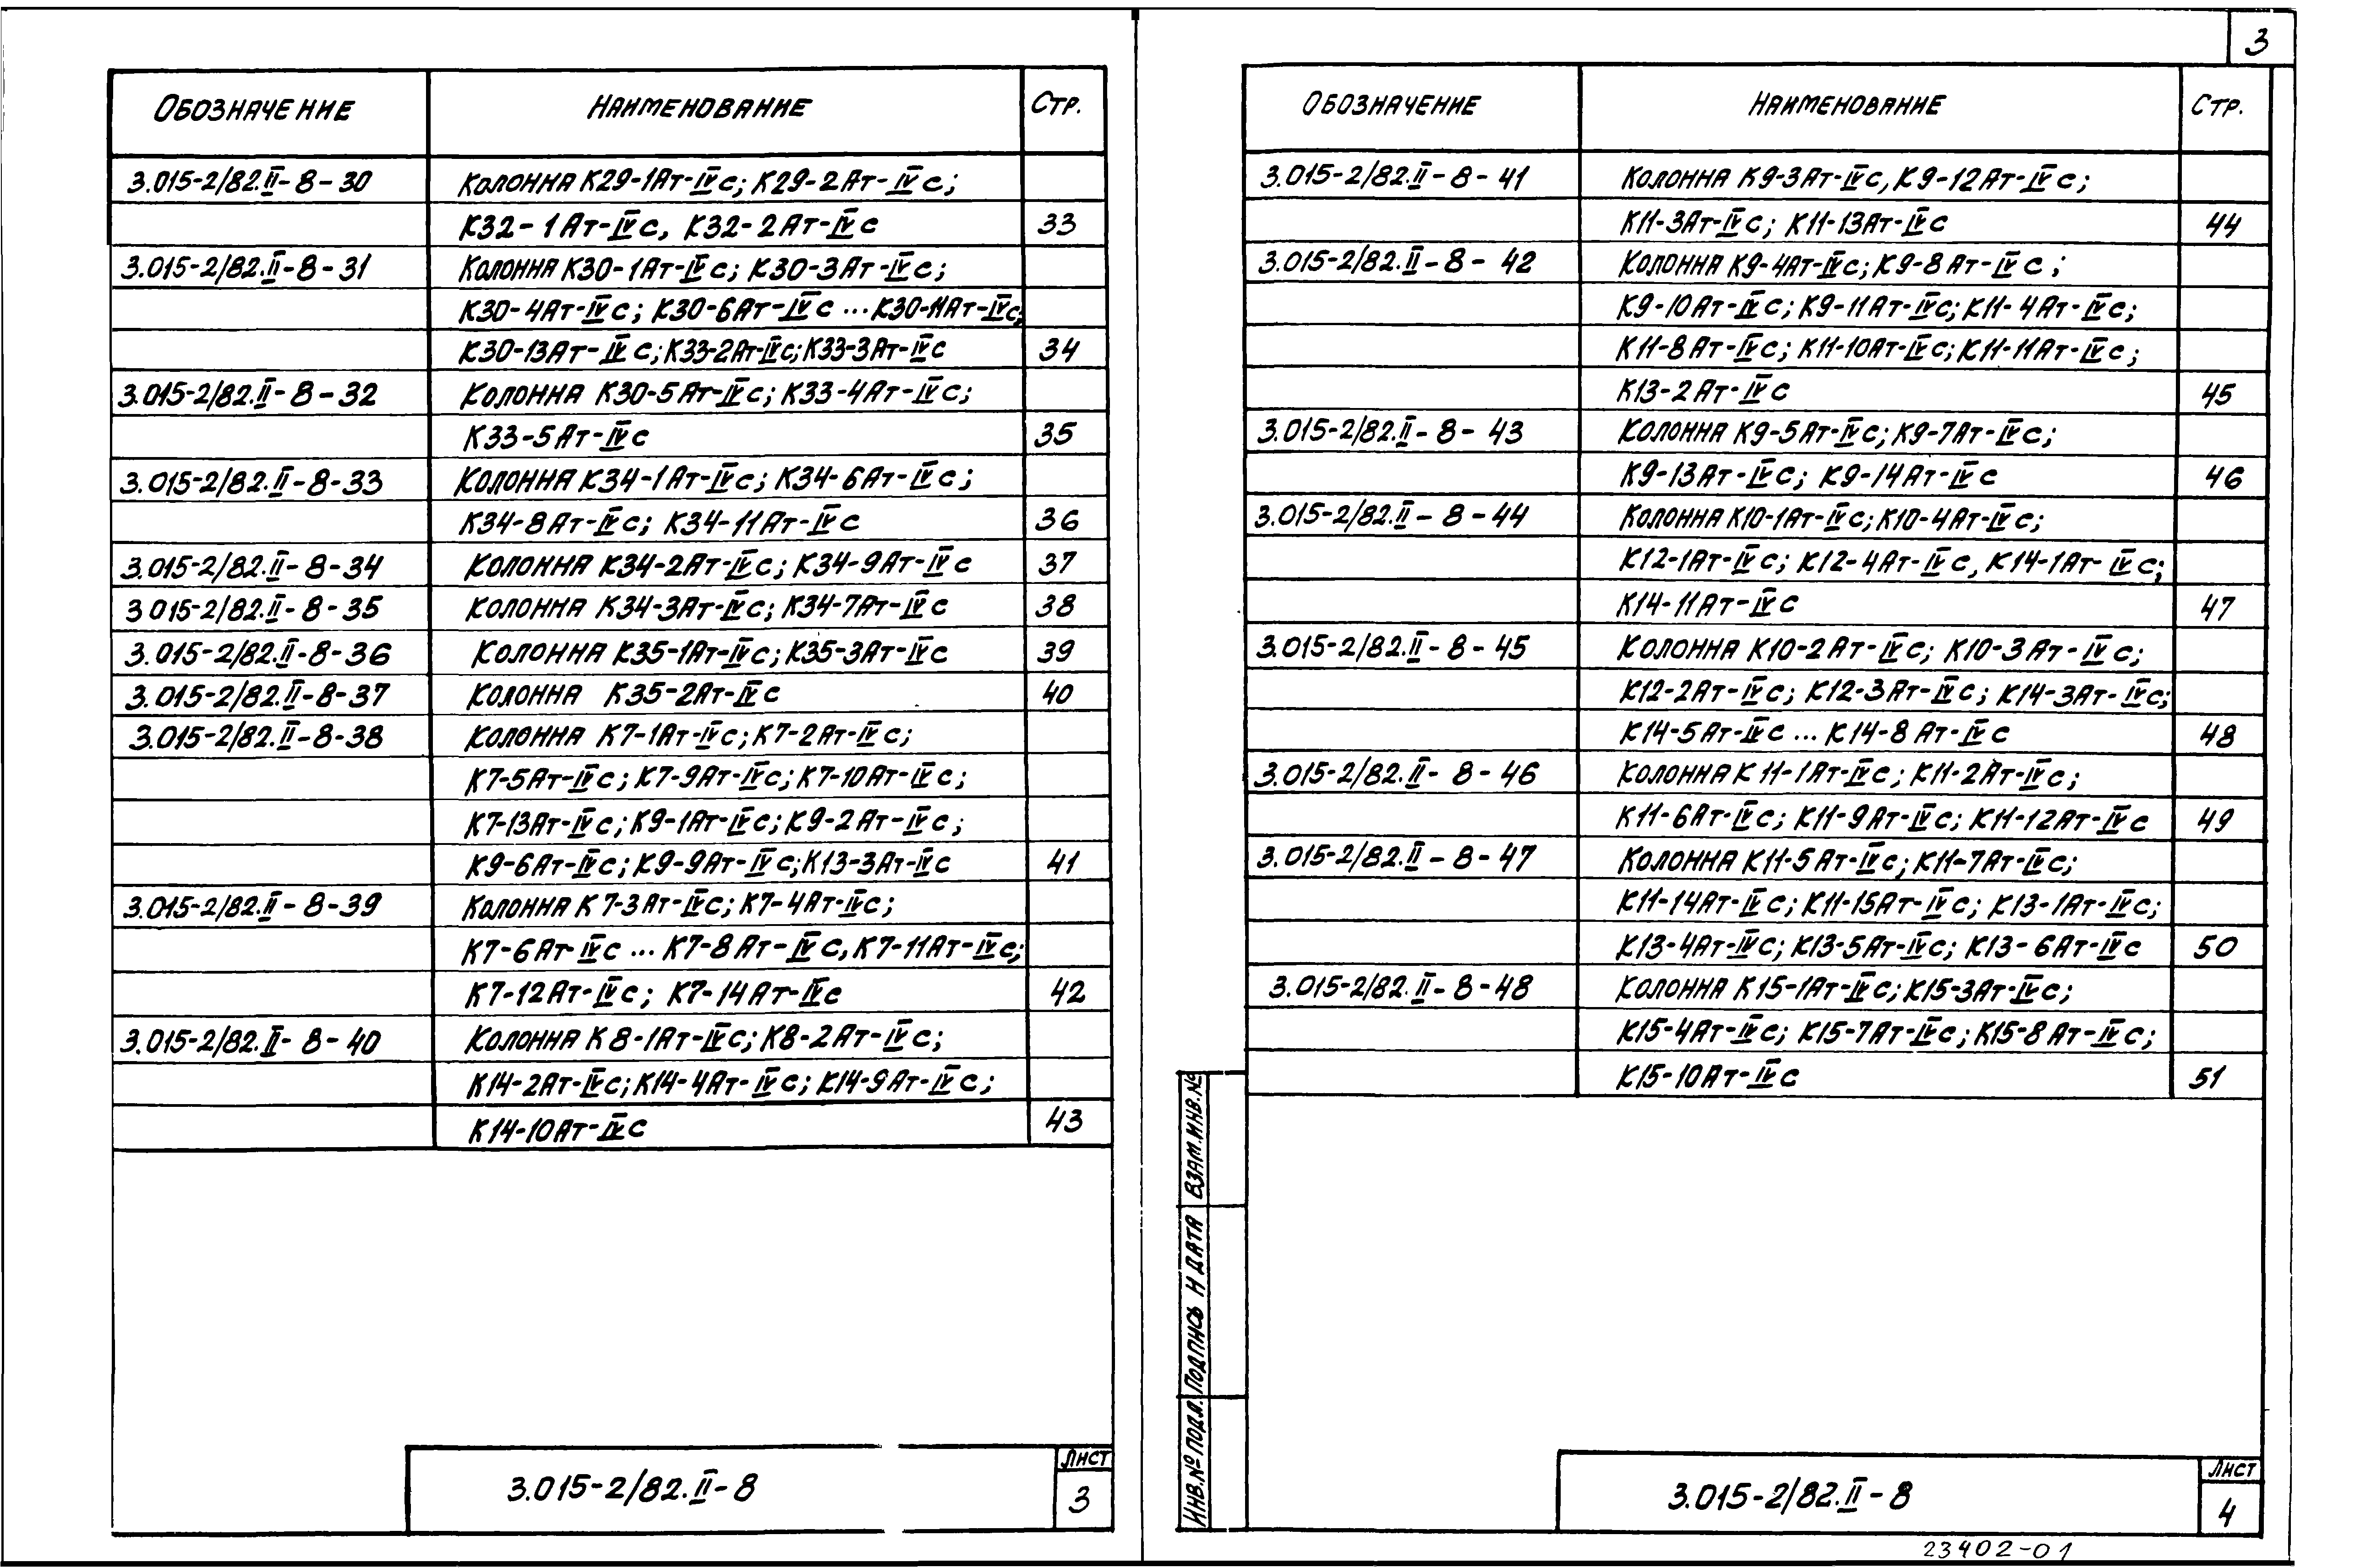 3
Обозначение Наименование Стр.
3.015-2/82.II-8-30 Колонна К29-1Ат-IVс; К29-2Ат-IVс;
К32-1Ат-IVс, К32-2Ат-IVс 33
3.015-2/82.II-8-31 Колонна К30-1Ат-IVс; К30-3Ат-IVс;
К30-4Ат-IVс; К30-6Ат-IVс ... К30-11Ат-IVс;
К30-13Ат-IVс; К33-2Ат-IVс; К33-3Ат-IVс 34
3.015-2/82.II-8-32 Колонна К30-5Ат-IVс; К33-4Ат-IVс;
К33-5Ат-IVс 35
3.015-2/82.II-8-33 Колонна К34-1Ат-IVс; К34-6Ат-IVс;
К34-8Ат-IVс; К34-11Ат-IVс 36
3.015-2/82.II-8-34 Колонна К34-2Ат-IVс; К34-9Ат-IVс 37
3 015-2/82.II-8-35 Колонна К34-3Ат-IVс; К34-7Ат-IVс 38
3.015-2/82.II-8-36 Колонна К35-1Ат-IVс; К35-3Ат-IVс 39
3.015-2/82.II-8-37 Колонна К35-2Ат-IVс 40
3.015-2/82.II-8-38 Колонна К7-1Ат-IVс; К7-2Ат-IVс;
К7-5Ат-IVс; К7-9Ат-IVс; К7-10Ат-IVс;
К7-13Ат-IVс; К9-1Ат-IVс; К9-2Ат-IVс;
К9-6Ат-IVс; К9-9Ат-IVс; К13-3Ат-IVс 41
3.015-2/82.II-8-39 Колонна К7-3Ат-IVс; К7-4Ат-IVс;
К7-6Ат-IVс ... К7-8Ат-IVс, К7-11Ат-IVс;
К7-12Ат-IVс; К7-14Ат-IVс 42
3.015-2/82.II-8-40 Колонна К8-1Ат-IVс; К8-2Ат-IVс;
К14-2Ат-IVс; К14-4Ат-IVс; К14-9Ат-IVс;
К14-10Ат-IVс 43
3.015-2/82.II-8
Лист
3
Обозначение Наименование Стр.
3.015-2/82.II-8-41 Колонна К9-3Ат-IVс, К9-12Ат-IVс;
К11-3Ат-IVс; К11-13Ат-IVс 44
3.015-2/82.II-8-42 Колонна К9-4Ат-IVс; К9-8Ат-IVс;
К9-10Ат-IVс; К9-11Ат-IVс; К11-4Ат-IVс;
К11-8Ат-IVс; К11-10Ат-IVс; К11-11Ат-IVс;
К13-2Ат-IVс 45
3.015-2/82.II-8-43 Колонна К9-5Ат-IVс; К9-7Ат-IVс;
К9-13Ат-IVс; К9-14Ат-IVс 46
3.015-2/82.II-8-44 Колонна К10-1Ат-IVс; К10-4Ат-IVс;
К12-1Ат-IVс; К12-4Ат-IVс, К14-1Ат-IVс;
К14-11Ат-IVс 47
3.015-2/82.II-8-45 Колонна К10-2Ат-IVс; К10-3Ат-IVс;
К12-2Ат-IVс; К12-3Ат-IVс; К14-3Ат-IVс;
К14-5Ат-IVс ... К14-8Ат-IVс 48
3.015-2/82.II-8-46 Колонна К11-1Ат-IVс; К11-2Ат-IVс;
К11-6Ат-IVс; К11-9Ат-IVс; К11-12Ат-IVс 49
3.015-2/82.II-8-47 Колонна К11-5Ат-IVс; К11-7Ат-IVс;
К11-14Ат-IVс; К11-15Ат-IVс; К13-1Ат-IVс;
К13-4Ат-IVс; К13-5Ат-IVс; К13-6Ат-IVс 50
3.015-2/82.II-8-48 Колонна К15-1Ат-IVс; К15-3Ат-IVс;
К15-4Ат-IVс; К15-7Ат-IVс; К15-8Ат-IVс;
К15-10Ат-IVс 51
Взам.инв.№
Подпись и дата
Инв.№ подл.
3.015-2/82.II-8
Лист
4
23402-01